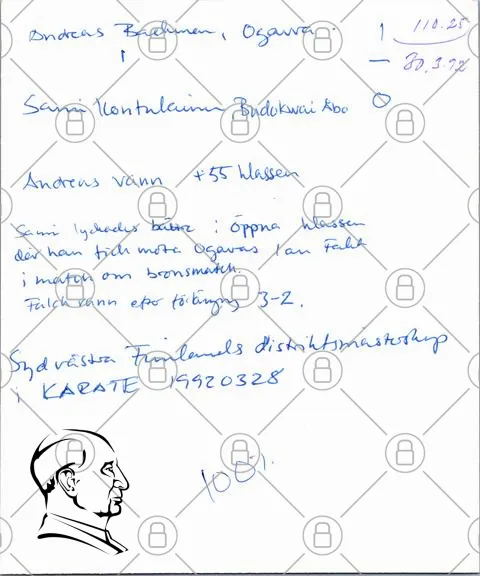 Andreas Backman, Ogawa. 1 110.25
1 — 30.3.92
Sami Kontulainen Budokwai Åbo 0
Andreas vann +55 klassen
Sami lyckades bättre i öppna klassen
där han fick möta Ogawas Ian Falck
i match om bronsmatch.
Falck vann efter förlängning 3-2.
Sydvästra Finlands distriktsmästerskap
i KARATE 19920328
100%